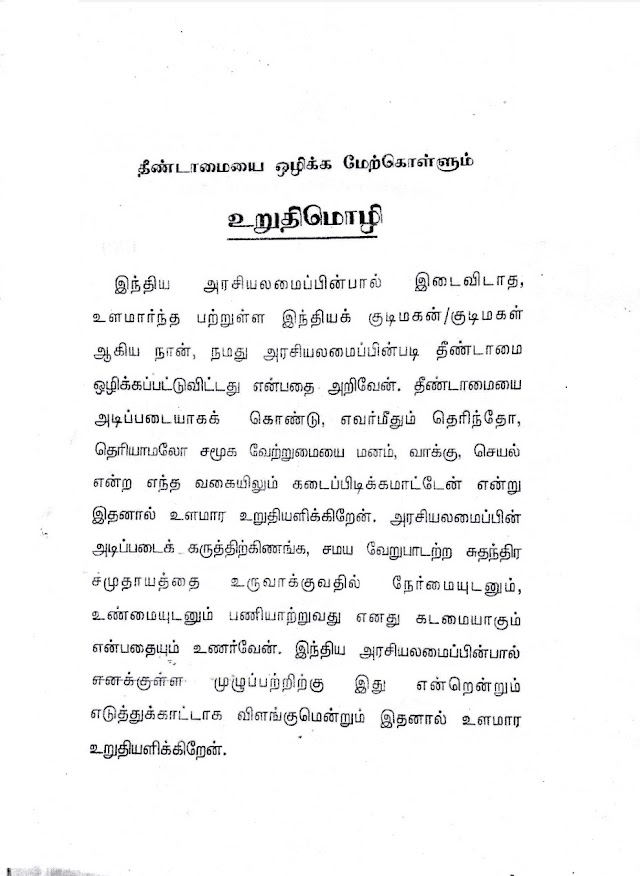 தீண்டாமையை ஒழிக்க மேற்கொள்ளும்
உறுதிமொழி
இந்திய அரசியலமைப்பின்பால் இடைவிடாத,
உளமார்ந்த பற்றுள்ள இந்தியக் குடிமகன்/குடிமகள்
ஆகிய நான், நமது அரசியலமைப்பின்படி தீண்டாமை
ஒழிக்கப்பட்டுவிட்டது என்பதை அறிவேன். தீண்டாமையை
அடிப்படையாகக் கொண்டு, எவர்மீதும் தெரிந்தோ,
தெரியாமலோ சமூக வேற்றுமையை மனம், வாக்கு, செயல்
என்ற எந்த வகையிலும் கடைப்பிடிக்கமாட்டேன் என்று
இதனால் உளமார உறுதியளிக்கிறேன். அரசியலமைப்பின்
அடிப்படைக் கருத்திற்கிணங்க, சமய வேறுபாடற்ற சுதந்திர
சமுதாயத்தை உருவாக்குவதில் நேர்மையுடனும்,
உண்மையுடனும் பணியாற்றுவது எனது கடமையாகும்
என்பதையும் உணர்வேன். இந்திய அரசியலமைப்பின்பால்
எனக்குள்ள முழுப்பற்றிற்கு இது என்றென்றும்
எடுத்துக்காட்டாக விளங்குமென்றும் இதனால் உளமார
உறுதியளிக்கிறேன்.